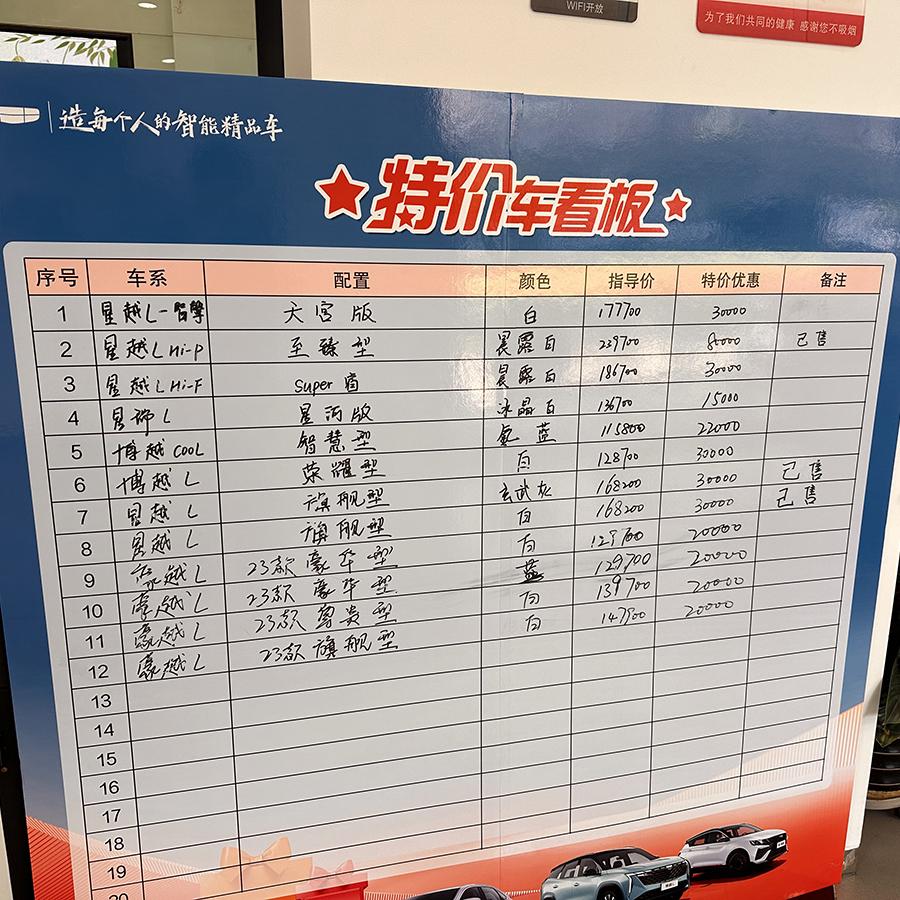 WIFI开放
为了我们共同的健康 感谢您不吸烟
造每个人的智能精品车
特价车看板
序号 车系 配置 颜色 指导价 特价优惠 备注
1 星越L-智擎 天宫版 白 177700 30000
2 星越L Hi-P 至臻型 晨露白 239700 80000 已售
3 星越L Hi-F Super 晨露白 186700 30000
4 星瑞L 星河版 冰晶白 136700 15000
5 博越COOL 智慧型 氢蓝 115800 22000
6 博越L 荣耀型 白 128700 30000
7 星越L 旗舰型 玄武灰 168200 30000 已售
8 星越L 旗舰型 白 168200 30000 已售
9 豪越L 23款豪华型 白 129700 20000
10 豪越L 23款豪华型 蓝 129700 20000
11 豪越L 23款尊贵型 白 139700 20000
12 豪越L 23款旗舰型 白 20000
13
14
15
16
17
18
19
20